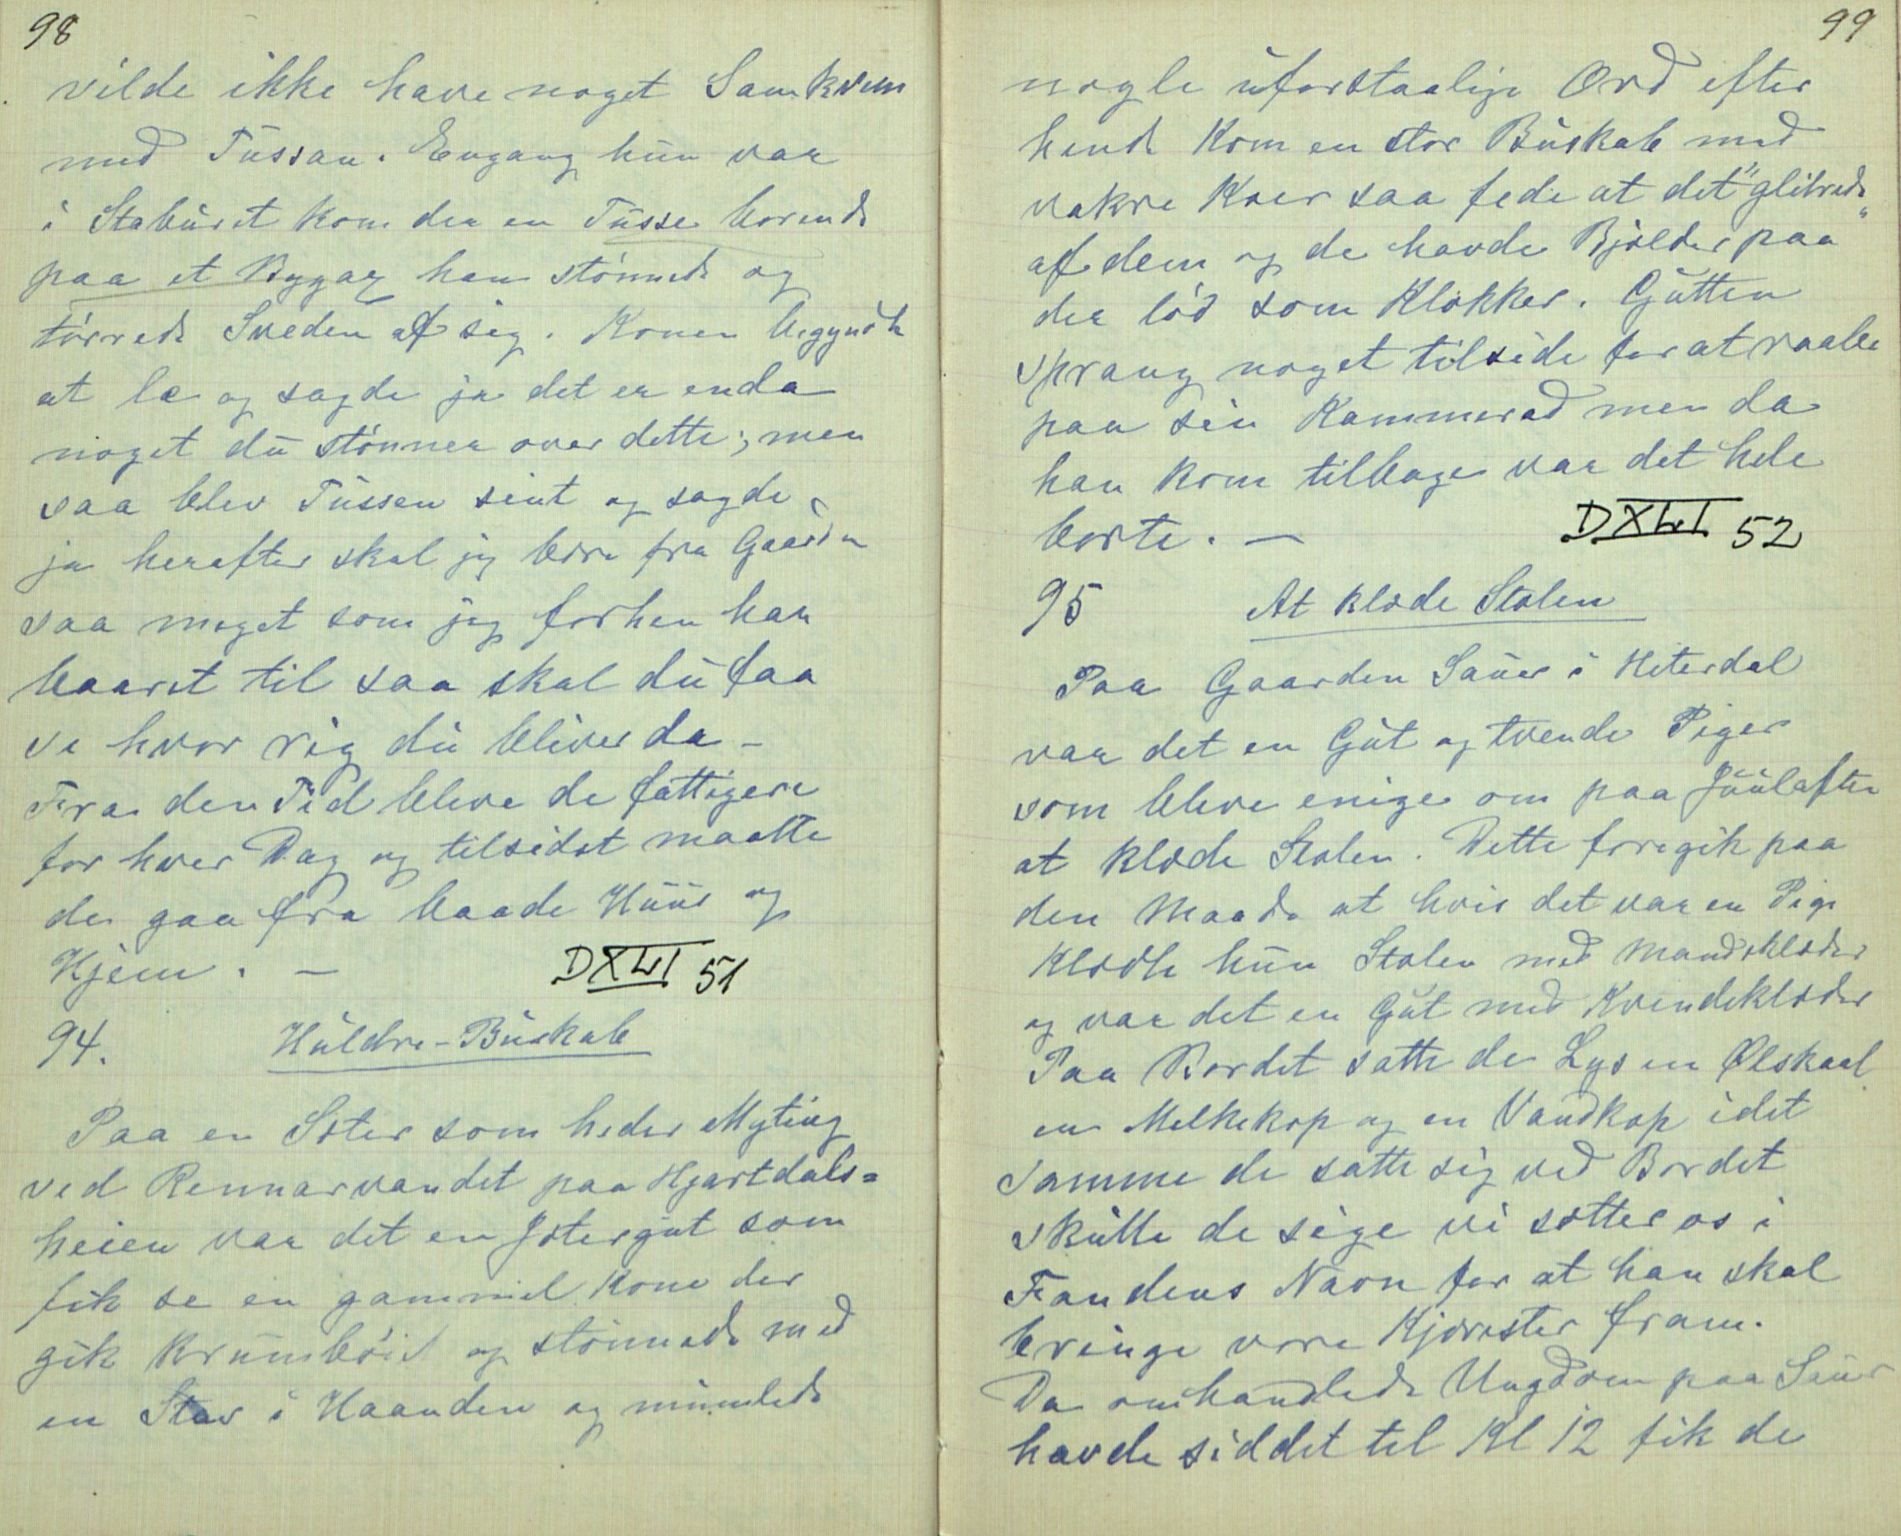 98
vilde ikke have noget Samkvem
med Tussan. Engang hun var
i Staburet kom der en Tusse berende
paa et Bygax han stønnede og
tørrede Sveden af sig. Konen begyndte
at le og sagde ja det er enda
noget du stønner over dette; men
saa blev Tussen sint og sagde
ja herefter skal jeg bere fra Gaarden
saa meget som jeg forhen har
baaret til saa skal du faa
se hvor rig du bliver da –
Fra den Tid bleve de fattigere
for hver Dag og tilsidst maatte
de gaa fra baade Huus og
Hjem. —
DXLI 51
94. Huldre-Buskab
Paa en Sæter som heder Myting
ved Rennarvandet paa Hjartdals=
heien var det en Jætergut som
fik se en gammel Kone der
gik krumbøiet og stønnede med
en Stav i Haanden og mumlede
99
nogle uforstaalige Ord efter
hende kom en stor Buskab med
vakre Koer saa fede at det "glitrede"
af dem og de havde Bjelder paa
der lød som Klokker. Gutten
sprang noget tilside for at raabe
paa sin Kammerad men da
han kom tilbage var det hele
borte. —
DXLI 52
95 At klæde Stolen
Paa Gaarden Sauer i Hiterdal
var det en Gut og tvende Piger
som bleve enige om paa Juulaften
at klæde Stolen. Dette foregik paa
den Maade at hvis det var en Pige
klædte hun Stolen med Mandsklæder
og var det en Gut med Kvindeklæder
Paa Bordet satte de Lys en Ølskaal
en Melkekop og en Vandkop idet
samme de satte sig ved Bordet
skulle de sige vi sætter os i
Fandens Navn for at han skal
bringe vore Kjærester fram.
Da omhandlede Ungdom paa Sauer
havde siddet til Kl 12 fik de